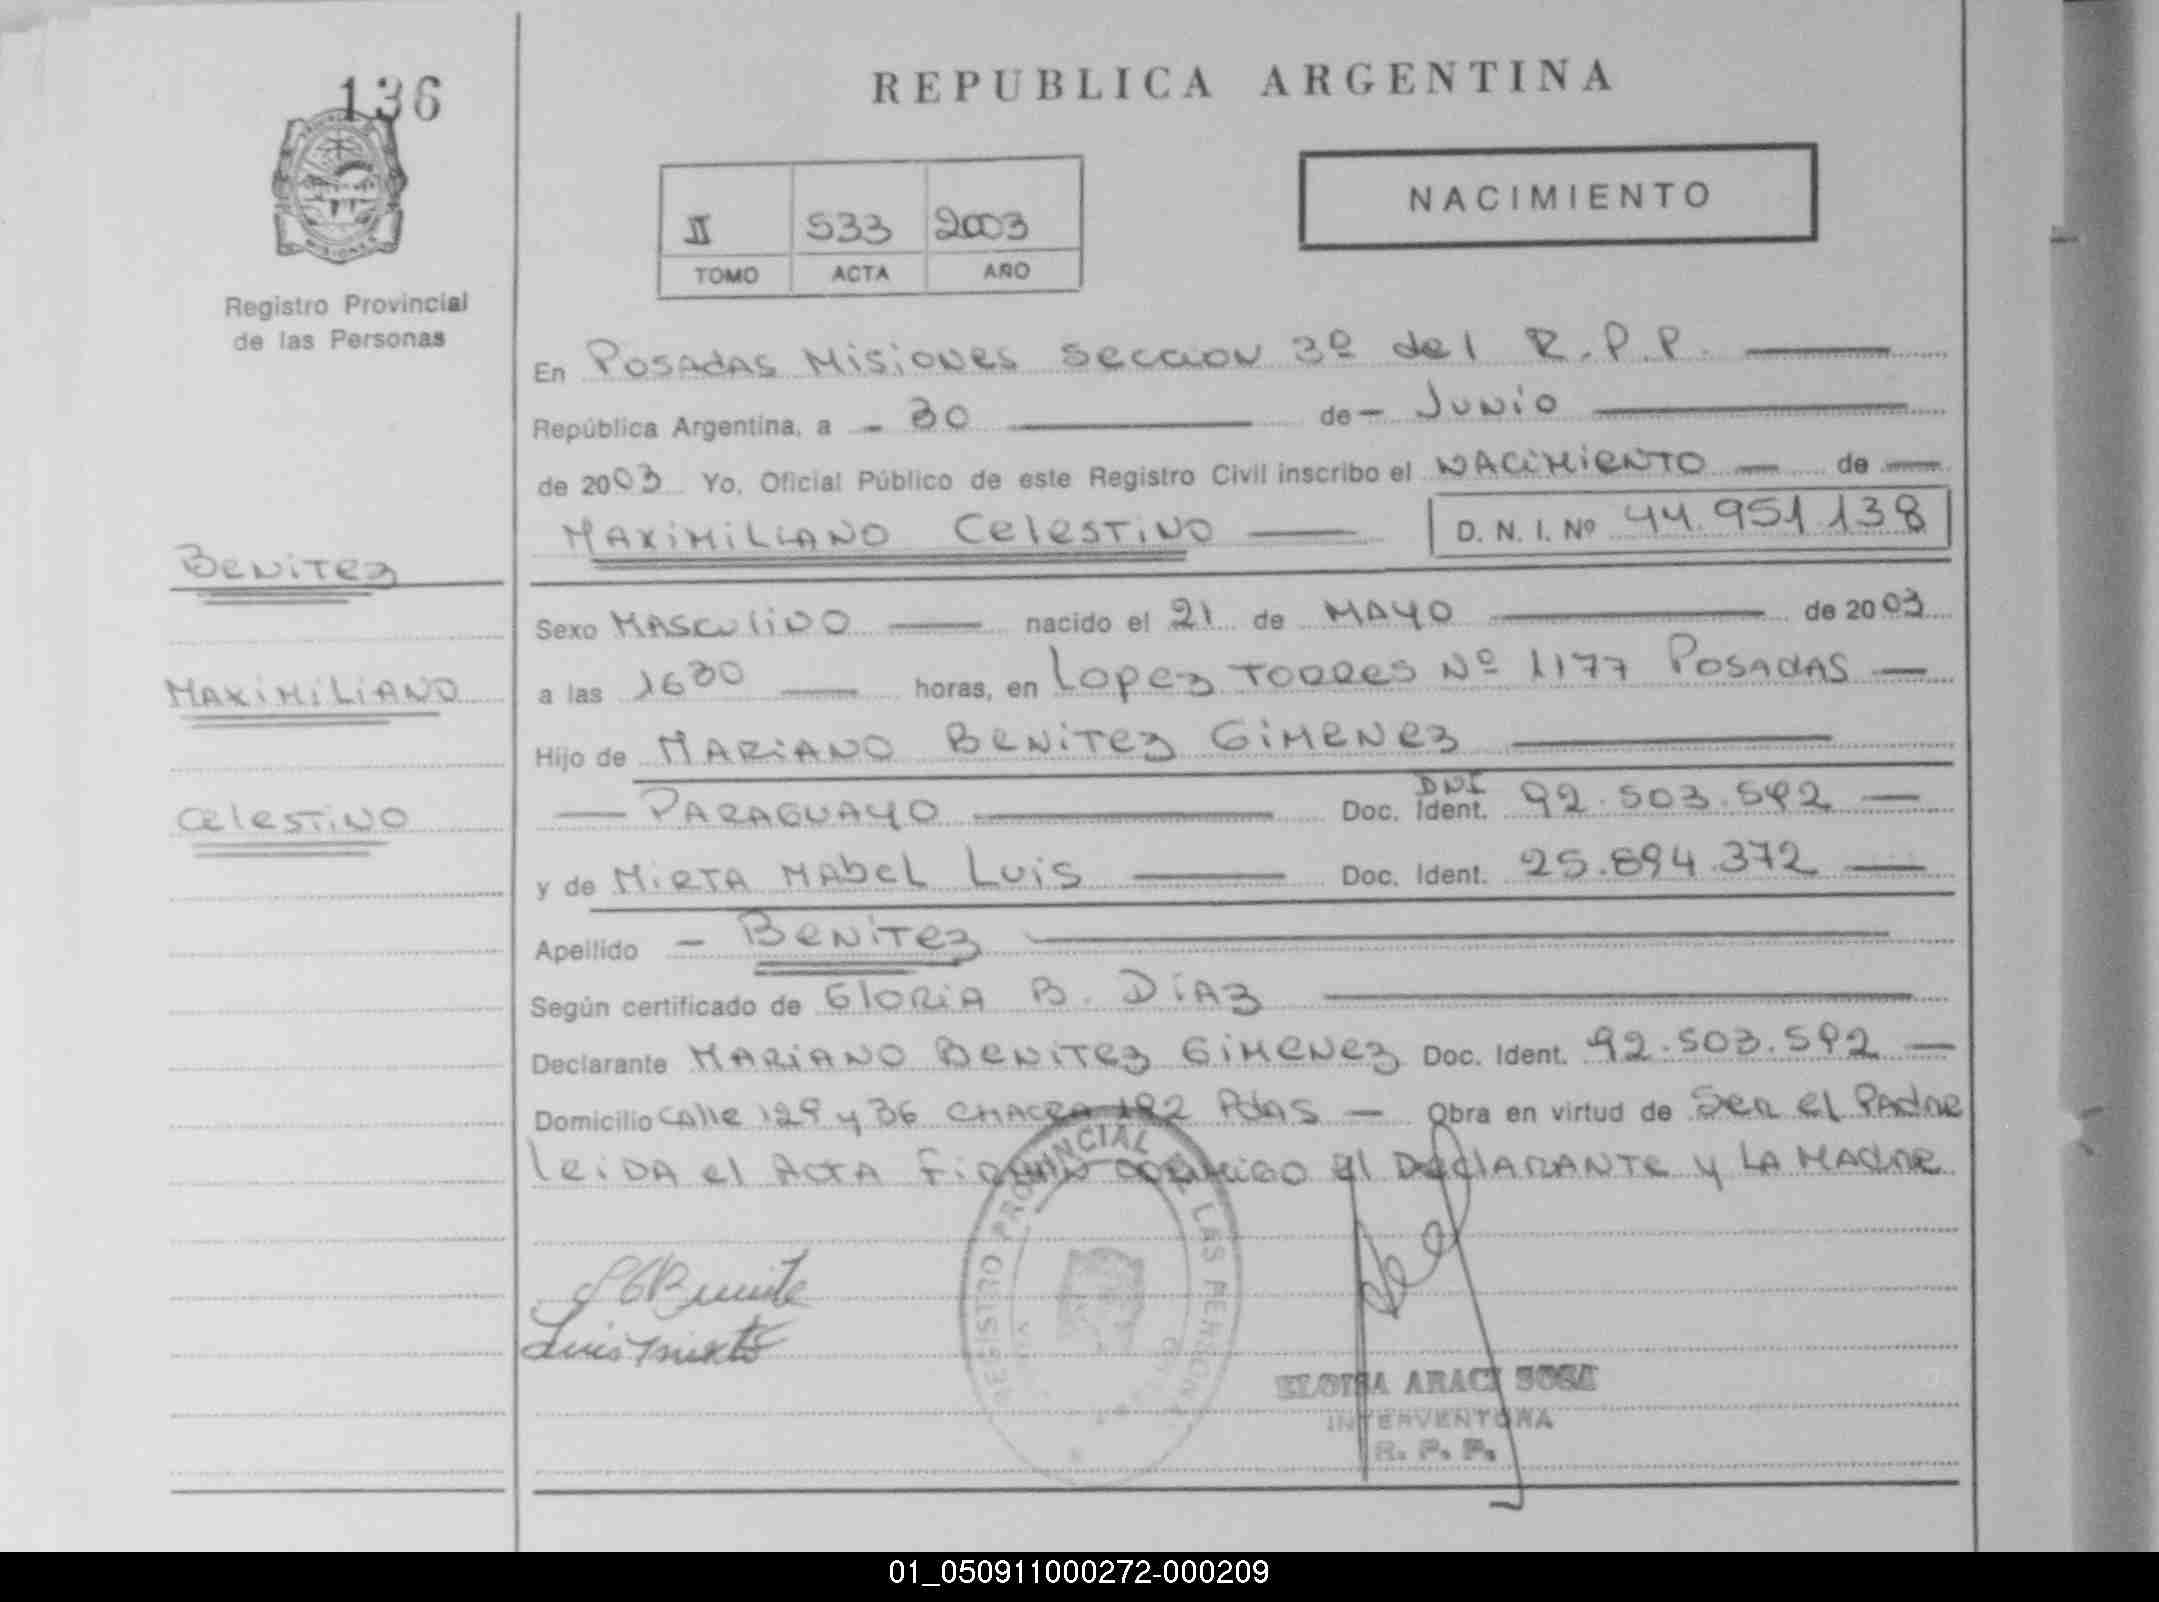 136
REPUBLICA ARGENTINA
NACIMIENTO
II 533 2003
TOMO ACTA AÑO
Registro Provincial
de las Personas
En Posadas Misiones Seccion 3º del R.P.P.
República Argentina, a - 30 de - Junio
de 2003 Yo, Oficial Público de este Registro Civil inscribo el NACIMIENTO de
MAXIMILIANO CELESTINO D. N. I. Nº 44.951.138
Benitez
Sexo MASCULINO nacido el 21 de MAYO de 2003
MAXIMILIANO
a las 1630 horas, en Lopez Torres Nº 1177 Posadas
Hijo de MARIANO Benitez Gimenez
Celestino
PARAGUAYO DNI Doc. Ident. 92.503.592
y de MIRTA MABEL Luis Doc. Ident. 25.894.372
Apellido - Benitez
Según certificado de Gloria B. Diaz
Declarante MARIANO Benitez Gimenez Doc. Ident. 92.503.592
Domicilio Calle 129 y 36 CHACRA 192 Pdas - Obra en virtud de Ser el Padre
leida el Acta Firman conmigo el Declarante y la Madre
REGISTRO PROVINCIAL DE LAS PERSONAS
Luis Mirta
ELOISA ARACI SOSA
INTERVENTORA
R. P. P.
01_050911000272-000209